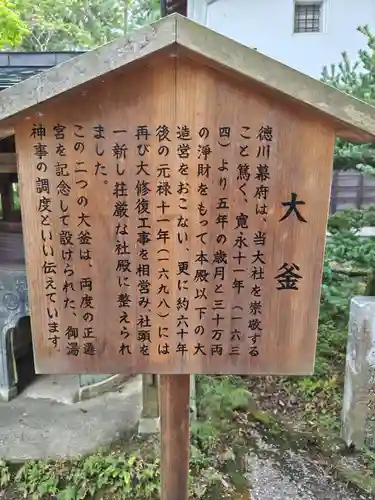 大釜
徳川幕府は、当大社を崇敬する
こと篤く、寛永十一年（一六三
四）より五年の歳月と三十万両
の浄財をもって本殿以下の大
造営をおこない、更に約六十年
後の元禄十一年（一六九八）には
再び大修復工事を相営み、社頭を
一新し荘厳な社殿に整えられ
ました。
この二つの大釜は、両度の正遷
宮を記念して設けられた、御湯
神事の調度といい伝えています。